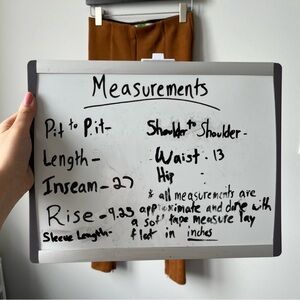 Measurements
Pit to Pit-
Length-
Inseam-27
Rise-9.25
Sleeve Length-
Shoulder to Shoulder-
Waist-13
Hip
* all measurements are
approximate and done with
a soft tape measure lay
flat in inches